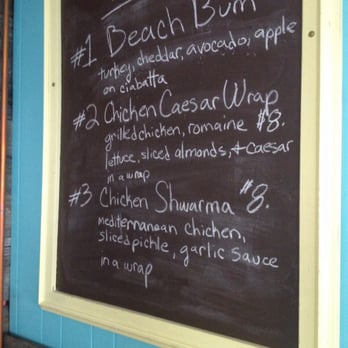 #1 Beach Bum
turkey, cheddar, avocado, apple
on ciabatta
#2 Chicken Caesar Wrap
grilled chicken, romaine $8.
lettuce, sliced almonds, + caesar
in a wrap
#3 Chicken Shwarma $8.
mediterranean chicken,
sliced pickle, garlic sauce
in a wrap